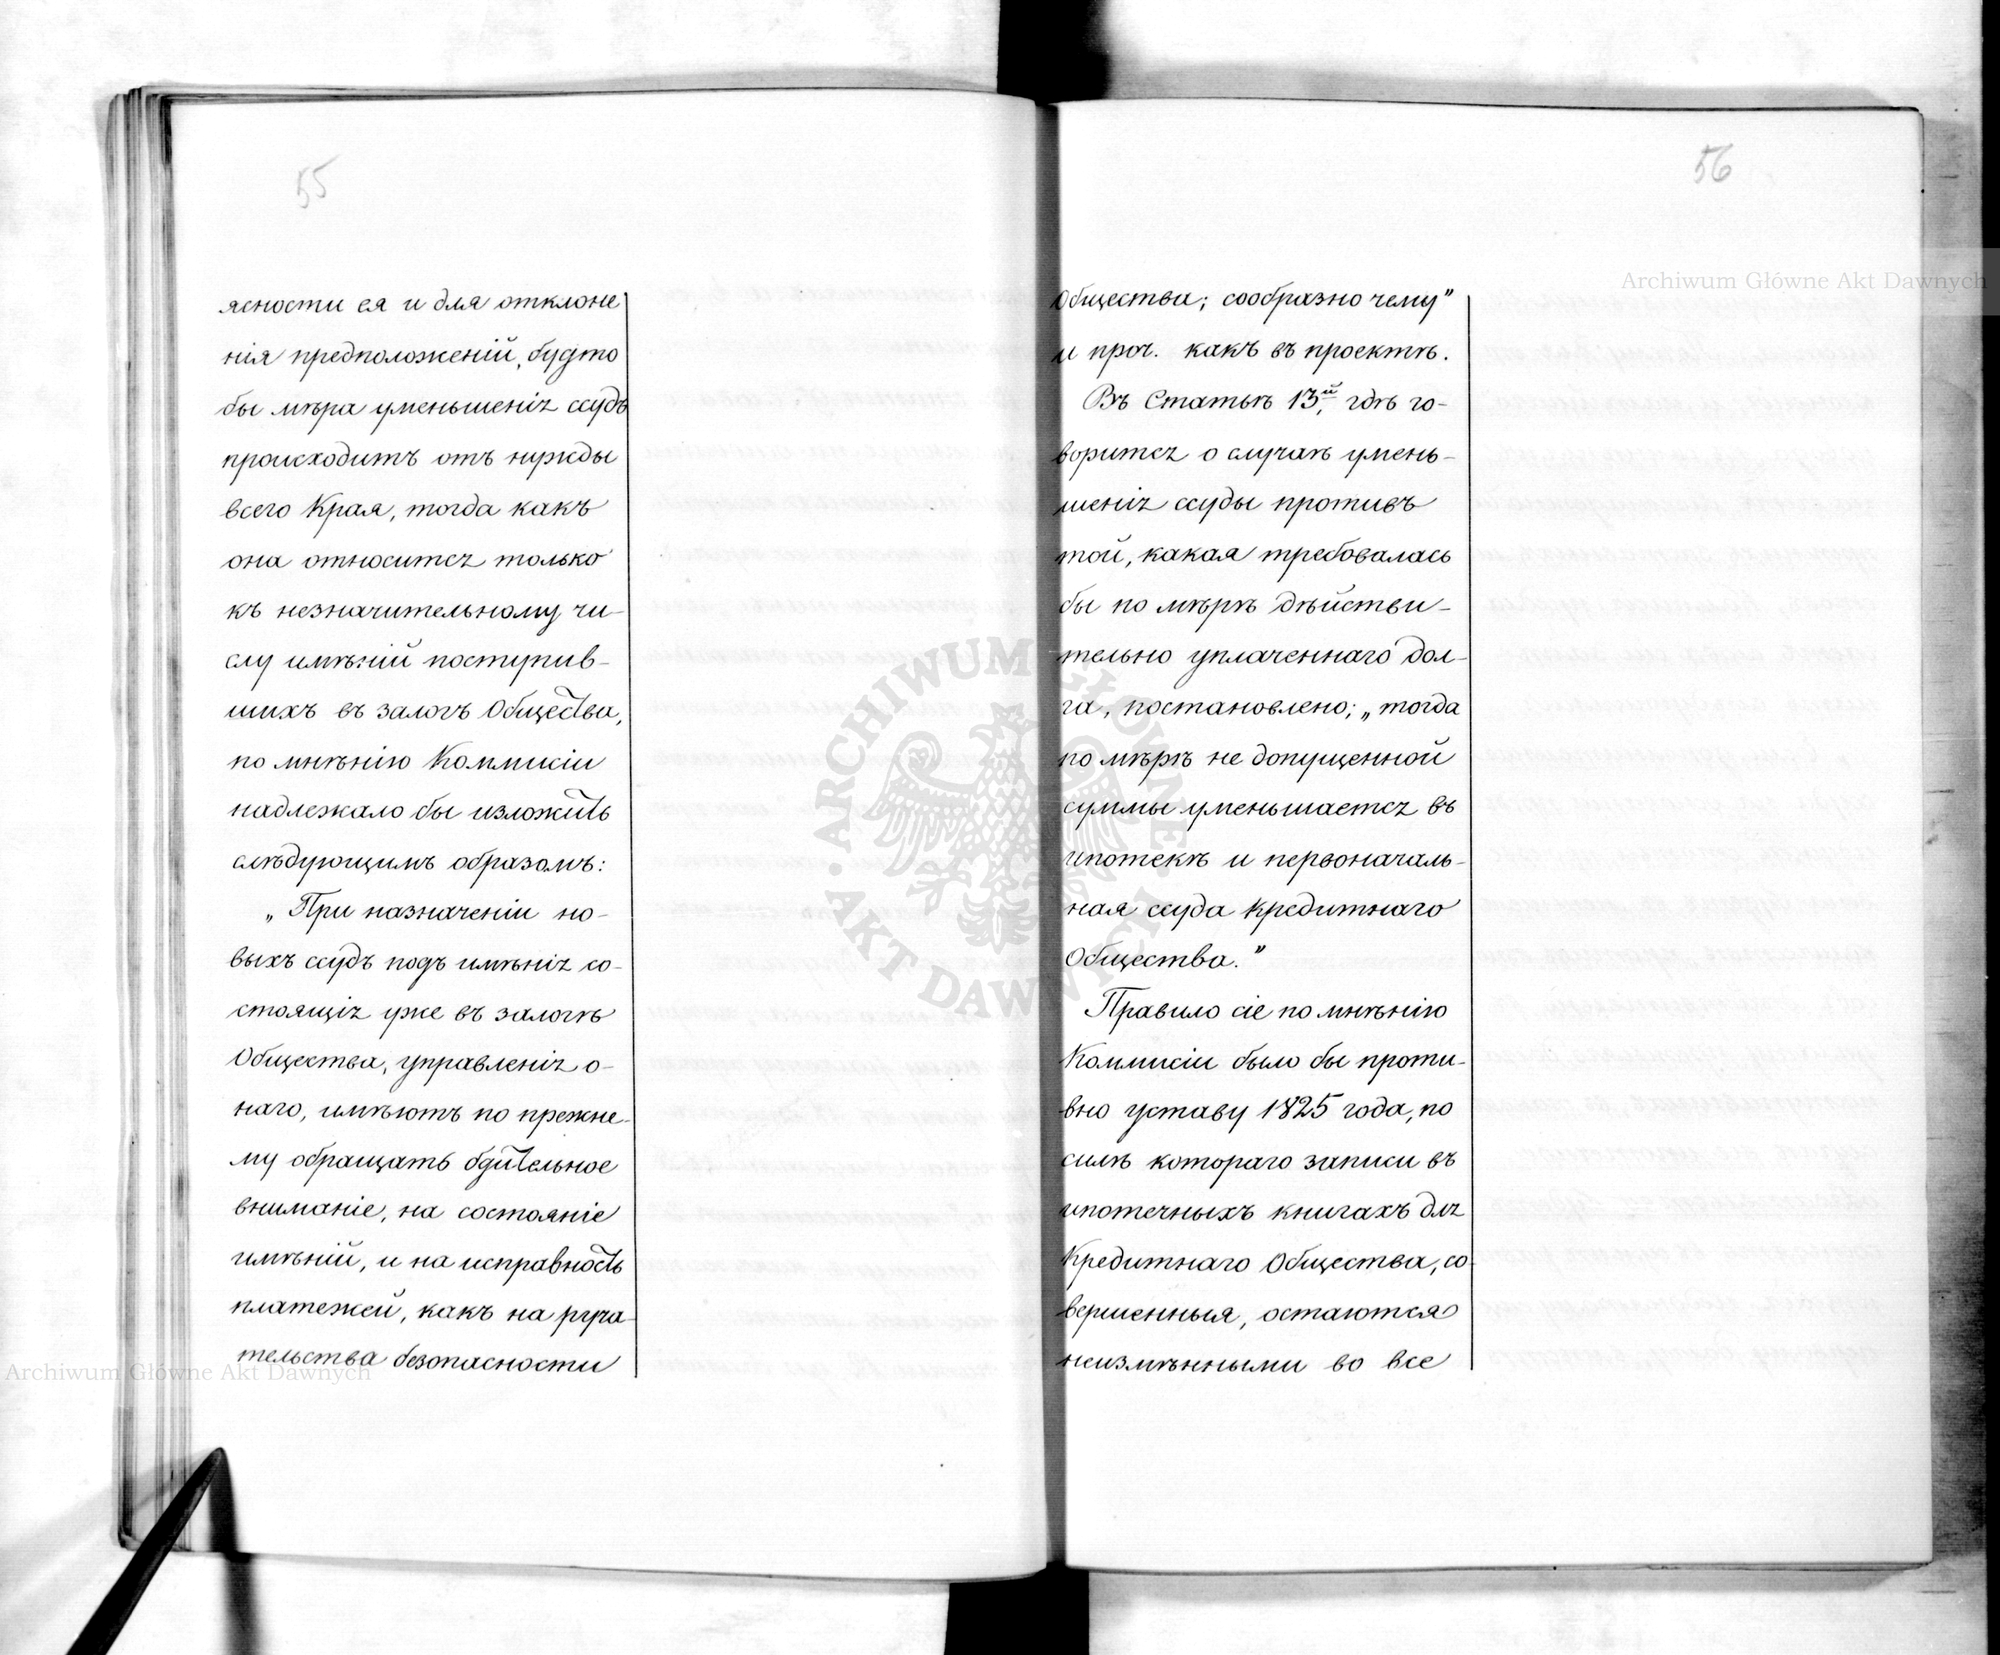 55
ясности ея и для отклоне
нія предположеній, будто
бы мѣра уменьшенія ссудъ
происходитъ отъ нужды
всего Края, тогда какъ
она относится только
къ незначительному чи-
слу имѣній поступив-
шихъ въ залогъ Общества,
по мнѣнію Коммисіи
надлежало бы изложить
слѣдующимъ образомъ:
„При назначеніи но-
выхъ ссудъ подъ имѣнія со-
стоящія уже въ залогѣ
Общества, управленія о-
наго, имѣютъ по прежне-
му обращать бдительное
вниманіе, на состояніе
имѣній, и на исправность
платежей, какъ на руча-
тельства безопасности
56
Общества; сообразно чему"
и проч. какъ въ проектѣ.
Въ Статьѣ 13й, гдѣ го-
ворится о случаѣ умень-
шенія ссуды противъ
той, какая требовалась
бы по мѣрѣ дѣйстви-
тельно уплаченнаго дол-
га, постановлено; „тогда
по мѣрѣ не допущенной
суммы уменьшается въ
ипотекѣ и первоначаль-
ная ссуда Кредитнаго
Общества."
Правило сіе по мнѣнію
Коммисіи было бы проти-
вно уставу 1825 года, по
силѣ котораго записи въ
ипотечныхъ книгахъ для
Кредитнаго Общества, со-
вершенныя, остаются
неизмѣнными во все
Archiwum Główne Akt Dawnych
Archiwum Główne Akt Dawnych
ARCHIWUM GŁÓWNE AKT DAWNYCH